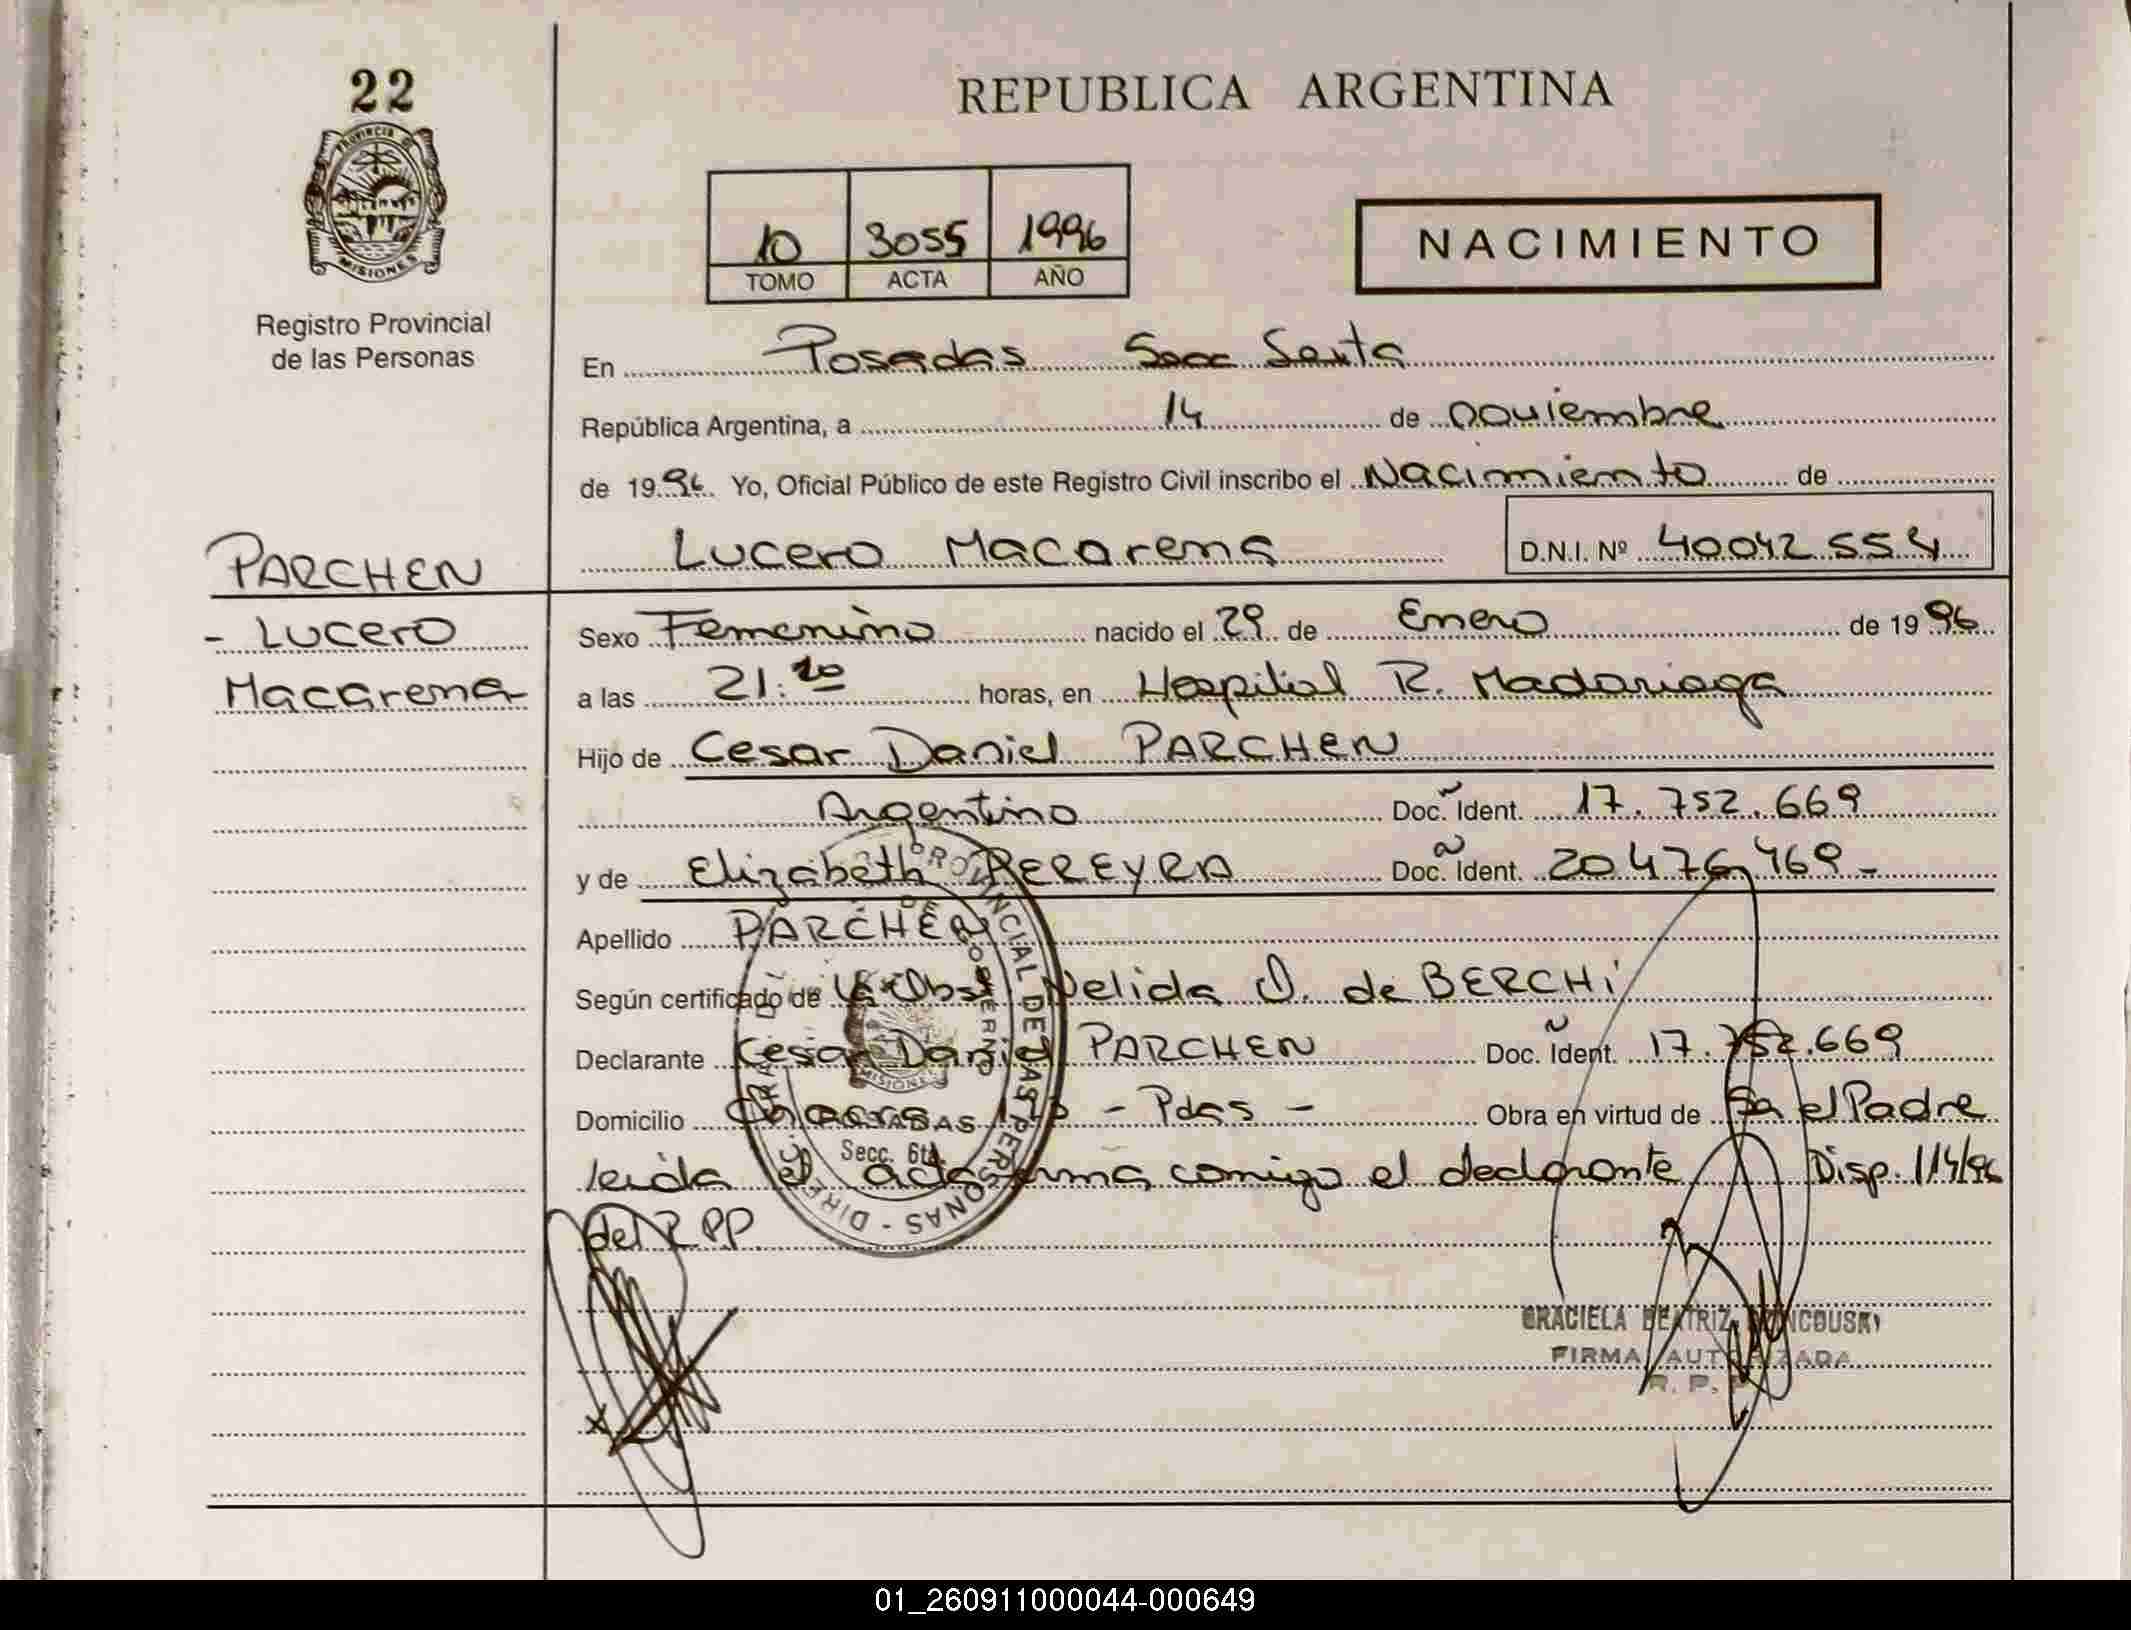 22
PROVINCIA DE
MISIONES
Registro Provincial
de las Personas
REPUBLICA ARGENTINA
10 3055 1996
TOMO ACTA AÑO
NACIMIENTO
En Posadas Secc Sexta
República Argentina, a 14 de noviembre
de 1996. Yo, Oficial Público de este Registro Civil inscribo el Nacimiento de
Lucero Macarena D.N.I. Nº 40042554
PARCHEN
- Lucero
Macarena
Sexo Femenino nacido el 29 de Enero de 1996
a las 21:20 horas, en Hospital R. Madariaga
Hijo de Cesar Daniel PARCHEN
Argentino Doc. Ident. 17.752.669
y de Elizabeth PEREYRA Doc. Ident. 20476469-
Apellido PARCHEN
Según certificado de la Obst Nelida O. de BERCHI
Declarante Cesar Daniel PARCHEN Doc. Ident. 17.752.669
Domicilio Chacra - Pdas - Obra en virtud de Sa el Padre
leida el acta firma conmigo el declarante Disp. 114/96
del RPP.
PROVINCIAL DE LAS PERSONAS - DIRE
DE GOBIERNO
MISIONES
POSADAS
Secc. 6ta.
GRACIELA BEATRIZ
FIRMA AUTORIZADA
R. P. P.
01_260911000044-000649